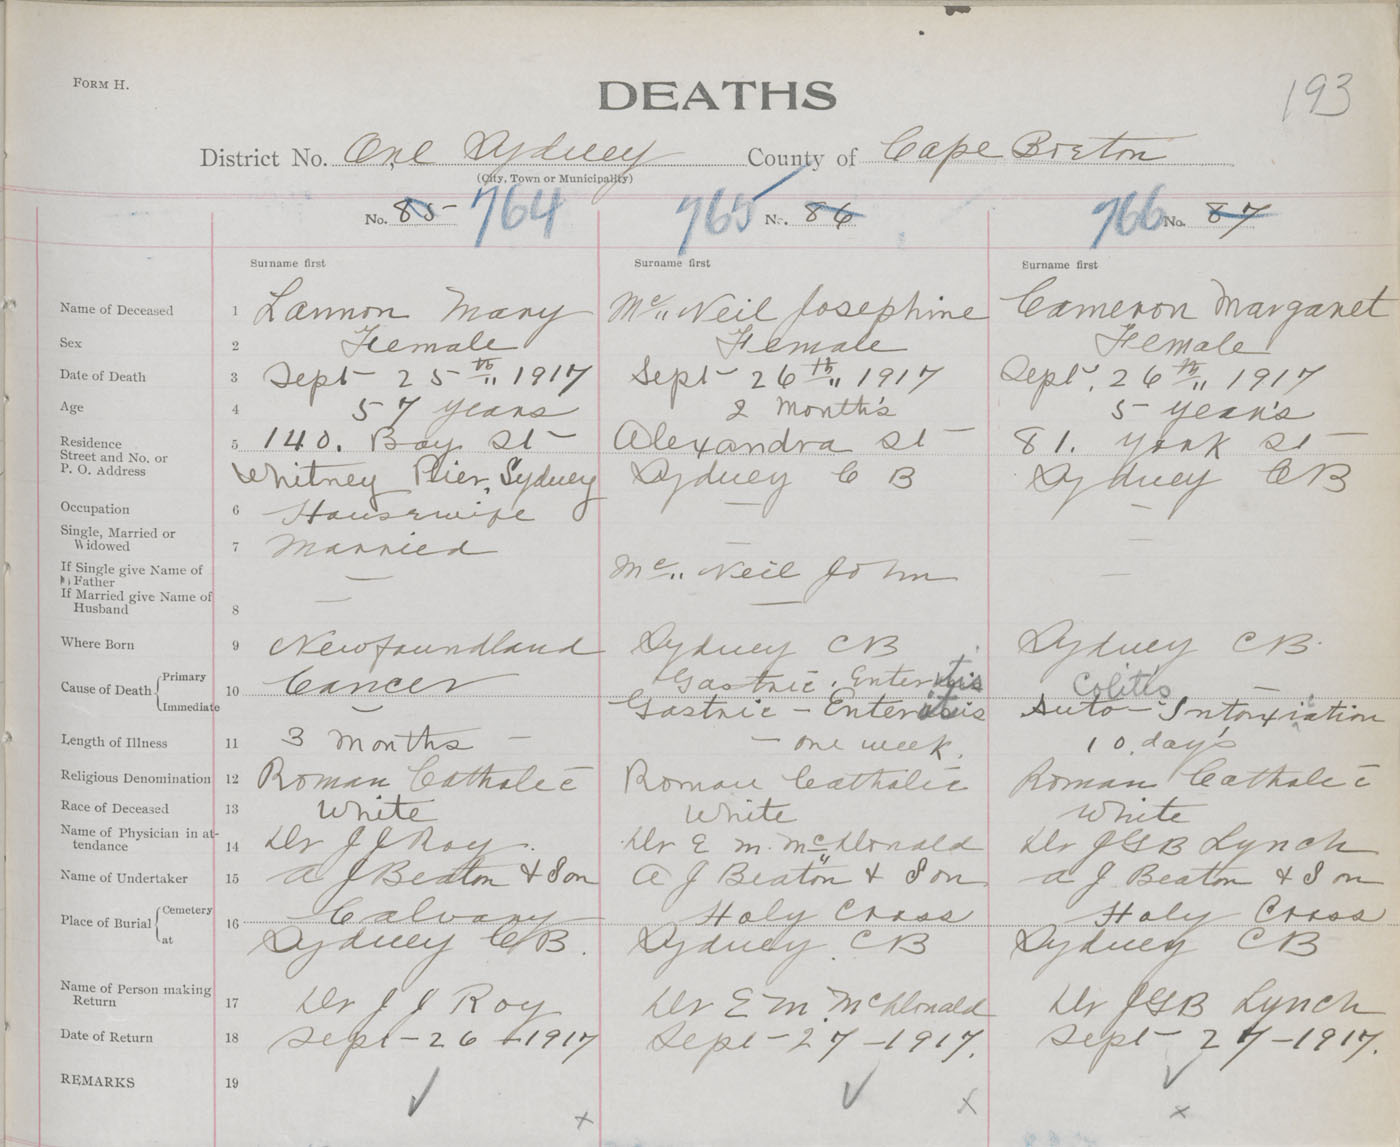 FORM H.
DEATHS
193
District No. One Sydney County of Cape Breton
(City, Town or Municipality)
No. 85 764 765 No. 86 766 No. 87
Surname first Surname first Surname first
Name of Deceased 1 Lannon Mary McNeil Josephine Cameron Margaret
Sex 2 Female Female Female
Date of Death 3 Sept 25th 1917 Sept 26th 1917 Sept. 26th 1917
Age 4 57 years 2 Month's 5 year's
Residence 5 140. Bay St Alexandra St 81. York St
Street and No. or
P. O. Address Whitney Pier, Sydney Sydney C B Sydney CB
Occupation 6 Housewife — —
Single, Married or
Widowed 7 Married — —
If Single give Name of
Father — McNeil John —
If Married give Name of
Husband 8 — —
Where Born 9 Newfoundland Sydney CB Sydney CB.
Cause of Death Primary 10 Cancer Gastric. Enteritis Colitis —
Immediate — Gastric - Enteritis Auto-Intoxication
Length of Illness 11 3 Months - - one week. 10. days
Religious Denomination 12 Roman Catholic Roman Catholic Roman Catholic
Race of Deceased 13 White White White
Name of Physician in at-
tendance 14 Dr J J Roy. Dr E M. McDonald Dr JGB Lynch
Name of Undertaker 15 A J Beaton & Son A J Beaton & Son A J Beaton & Son
Place of Burial Cemetery 16 Calvary Holy Cross Holy Cross
at Sydney CB. Sydney. CB Sydney CB
Name of Person making
Return 17 Dr J J Roy Dr E M. McDonald Dr JGB Lynch
Date of Return 18 Sept-26-1917 Sept-27-1917. Sept 27-1917.
REMARKS 19 ✓ x ✓ x ✓ x